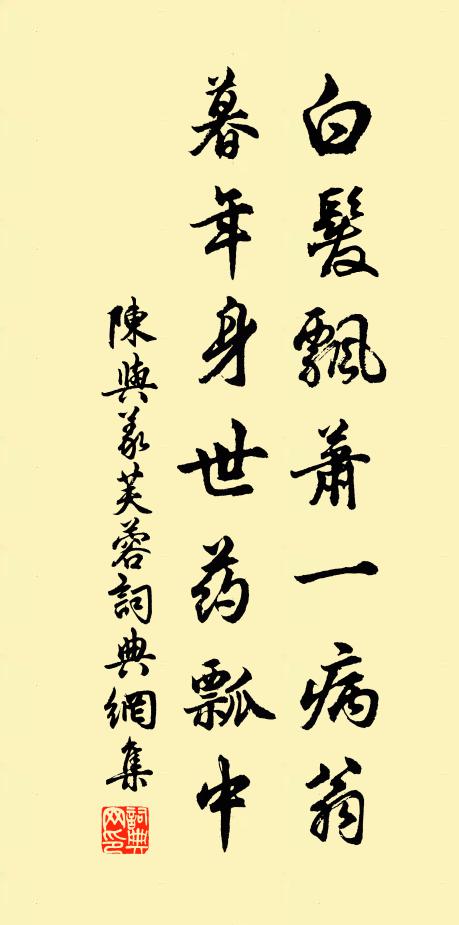 白髮飄蕭一病翁
暮年身世药瓢中
陳與義芙蓉詞典網集
詞典
网印